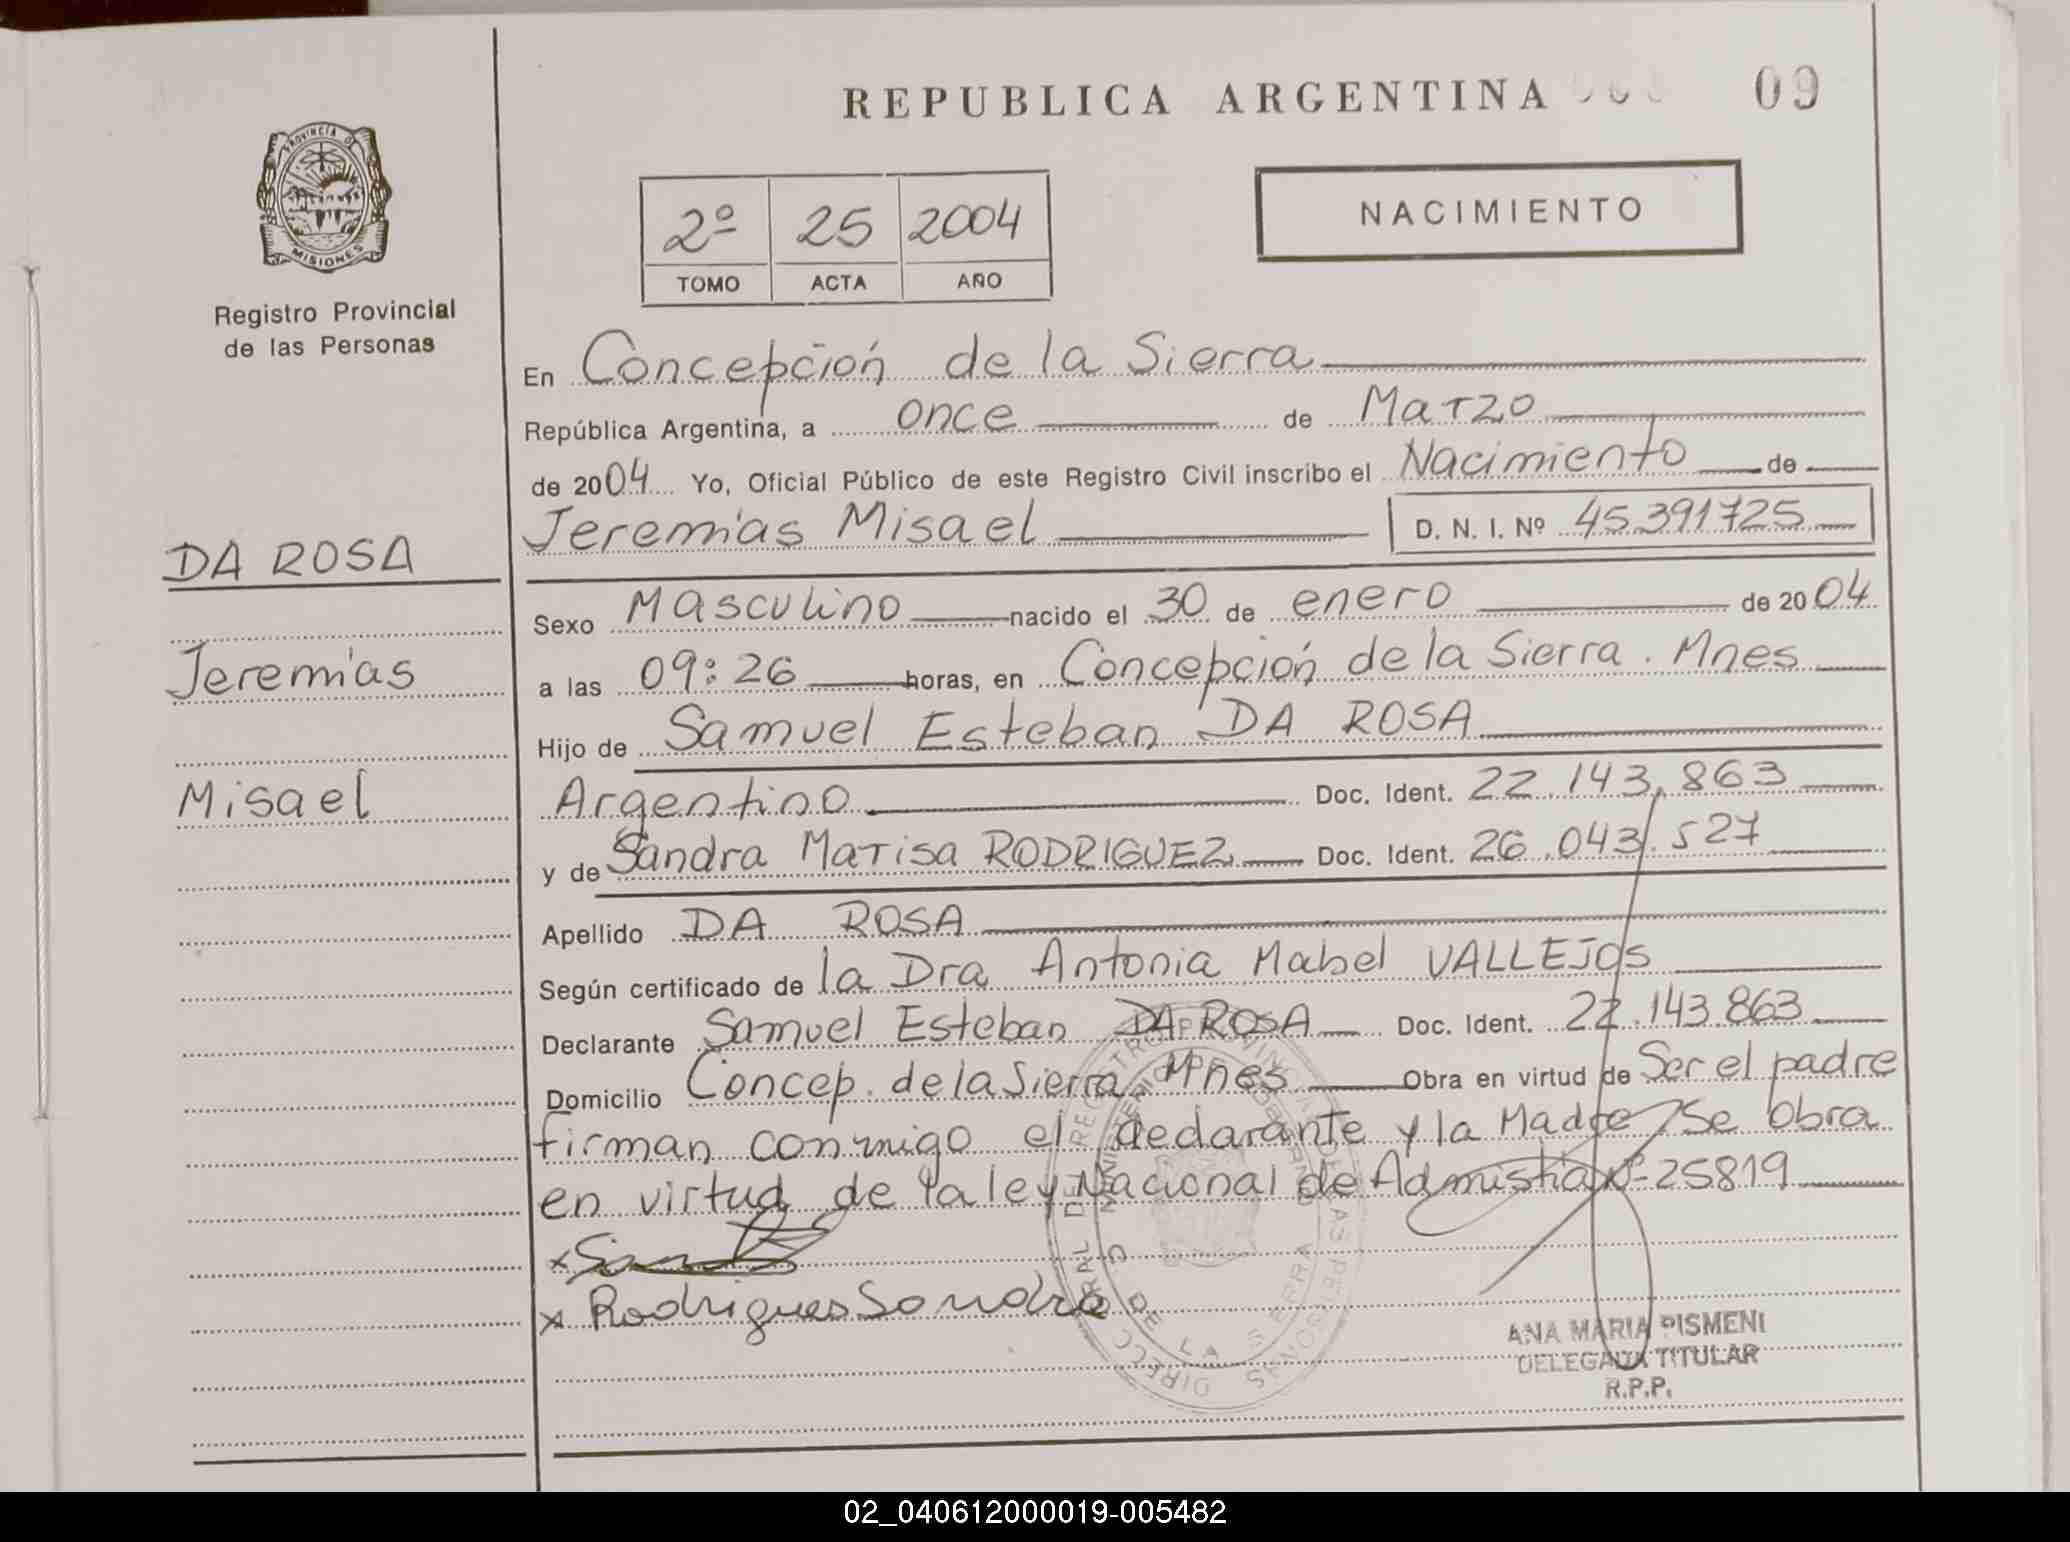 REPUBLICA ARGENTINA 09
PROVINCIA DE
MISIONES
Registro Provincial
de las Personas
2º 25 2004
TOMO ACTA AÑO
NACIMIENTO
En Concepción de la Sierra
República Argentina, a once de Marzo
de 2004 Yo, Oficial Público de este Registro Civil inscribo el Nacimiento de
Jeremías Misael D. N. I. Nº 45.391725
DA ROSA
Jeremías
Misael
Sexo Masculino nacido el 30 de enero de 2004
a las 09:26 horas, en Concepción de la Sierra. Mnes
Hijo de Samuel Esteban DA ROSA
Argentino Doc. Ident. 22.143.863
y de Sandra Marisa RODRIGUEZ Doc. Ident. 26.043.527
Apellido DA ROSA
Según certificado de la Dra Antonia Mabel VALLEJOS
Declarante Samuel Esteban DA ROSA Doc. Ident. 22.143.863
Domicilio Concep. de la Sierra Mnes Obra en virtud de Ser el padre
firman conmigo el declarante y la Madre Se Obra
en virtud de la ley Nacional de Admistia Nº 25819
x
x Rodrigues Sandra
DE LA SIERRA
ANA MARIA PISMENI
DELEGADA TITULAR
R.P.P.
02_040612000019-005482